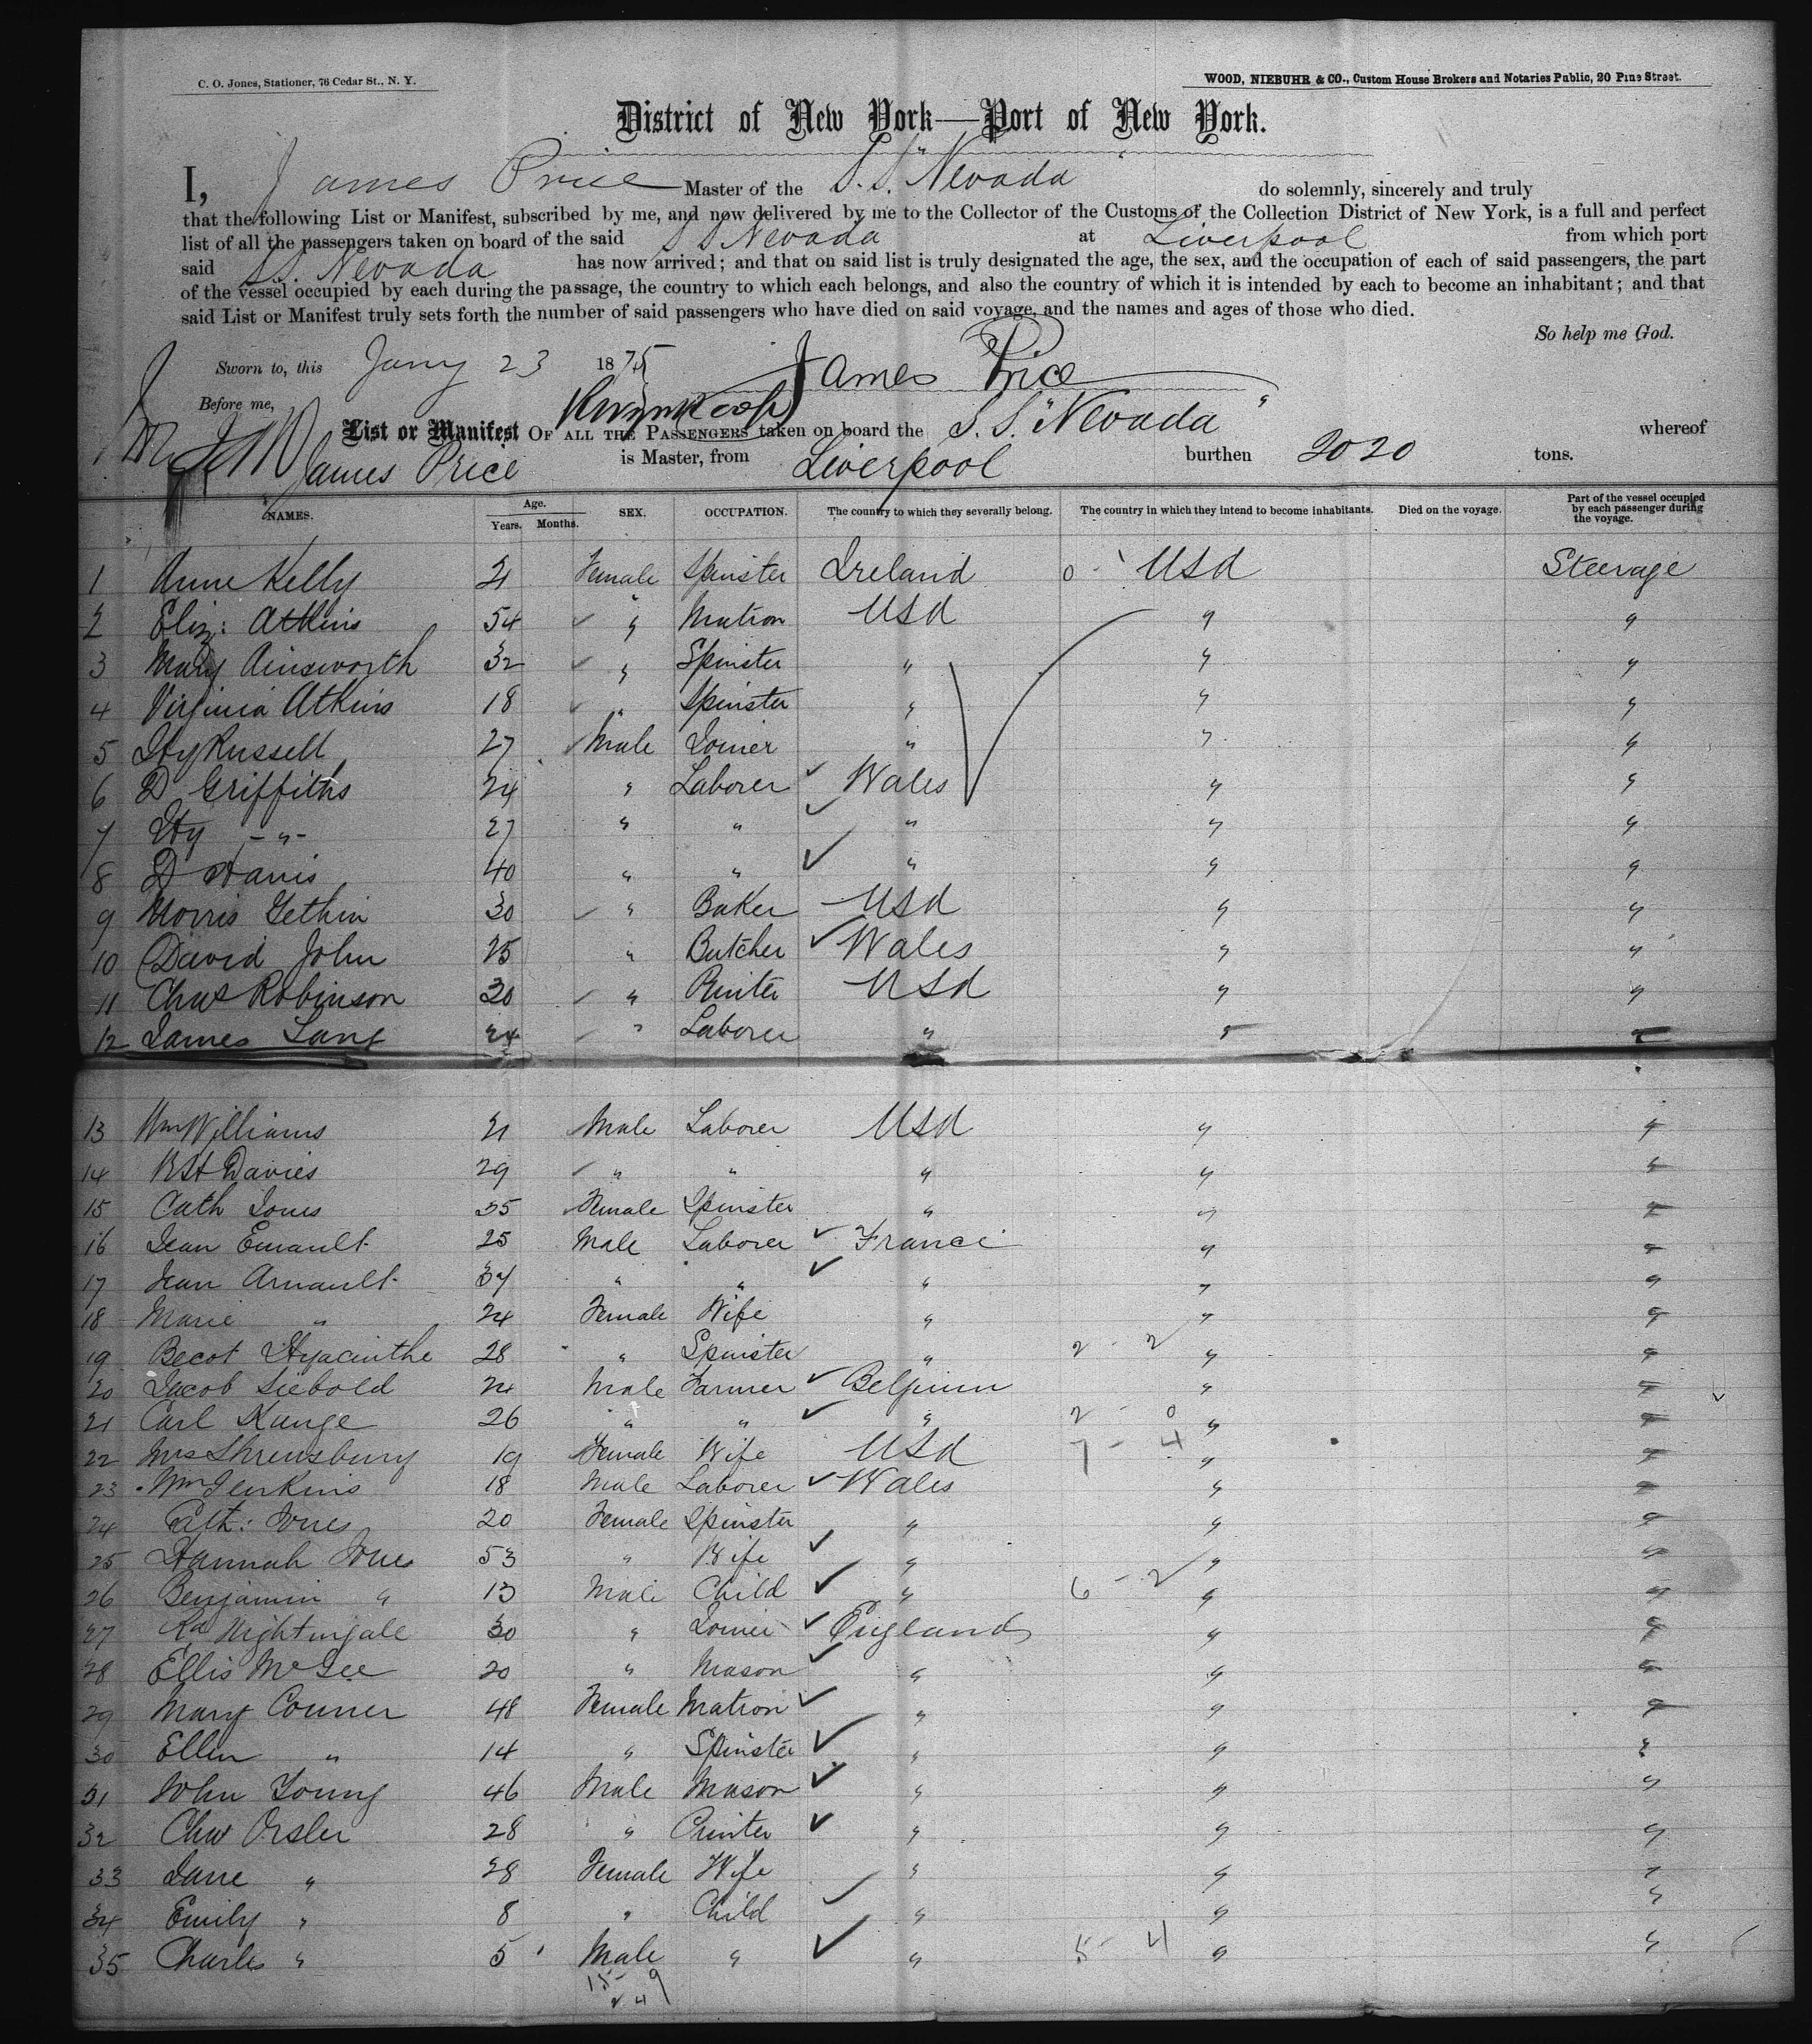 C. O. Jones, Stationer, 76 Cedar St., N. Y.
WOOD, NIEBUHR & CO., Custom House Brokers and Notaries Public, 20 Pine Street.
District of New York—Port of New York.
I, James Price Master of the S.S. "Nevada" do solemnly, sincerely and truly
that the following List or Manifest, subscribed by me, and now delivered by me to the Collector of the Customs of the Collection District of New York, is a full and perfect
list of all the passengers taken on board of the said S S Nevada at Liverpool from which port
said S.S. Nevada has now arrived; and that on said list is truly designated the age, the sex, and the occupation of each of said passengers, the part
of the vessel occupied by each during the passage, the country to which each belongs, and also the country of which it is intended by each to become an inhabitant; and that
said List or Manifest truly sets forth the number of said passengers who have died on said voyage, and the names and ages of those who died.
So help me God.
Sworn to, this Jany 23 1875 James Price
Before me,
List or Manifest OF ALL THE PASSENGERS taken on board the S. S. "Nevada" whereof
James Price is Master, from Liverpool burthen 2020 tons.
NAMES. Age. Years. Months. SEX. OCCUPATION. The country to which they severally belong. The country in which they intend to become inhabitants. Died on the voyage. Part of the vessel occupied by each passenger during the voyage.
1 Anne Kelly 21 Female Spinster Ireland 0 - USA Steerage
2 Eliz: Atkins 54 " Matron USA " "
3 Mary Ainsworth 32 " Spinster " " "
4 Virginia Atkins 18 " Spinster " " "
5 Hy Russell 27 Male Joiner " " "
6 D Griffiths 24 " Laborer Wales " "
7 Hy -"- 27 " " " " "
8 D Harris 40 " " " " "
9 Morris Gethin 30 " Baker USA " "
10 David John 25 " Butcher Wales " "
11 Chas Robinson 30 " Printer USA " "
12 James Lang 24 " Laborer " " "
13 Wm Williams 21 Male Laborer USA " "
14 Davies 29 " " " " "
15 Cath Jones 35 Female Spinster " " "
16 Jean Emault 25 Male Laborer France " "
17 Jean Arnault 34 " " " " "
18 Marie " 24 Female Wife " " "
19 Becot Hyacinthe 28 " Spinster " 2 - 2 " "
20 Jacob Siebold 24 Male Farmer Belgium " "
21 Carl Kange 26 " " " 2 - 0 " "
22 Mrs Shrewsbury 19 Female Wife USA 7 - 4 " "
23 Wm Jenkins 18 Male Laborer Wales " "
24 Cath: Jones 20 Female Spinster " " "
25 Hannah Jones 53 " Wife " " "
26 Benjamin " 13 Male Child " 6 - 2 " "
27 Rd Nightingale 30 " Joiner England " "
28 Ellis McGee 20 " Mason " " "
29 Mary Conner 48 Female Matron " " "
30 Ellen " 14 " Spinster " " "
31 John Young 46 Male Mason " " "
32 Chas Orsler 28 " Printer " " "
33 Jane " 28 Female Wife " " "
34 Emily " 8 " Child " " "
35 Charles " 5 Male " " 5 - 4 " "